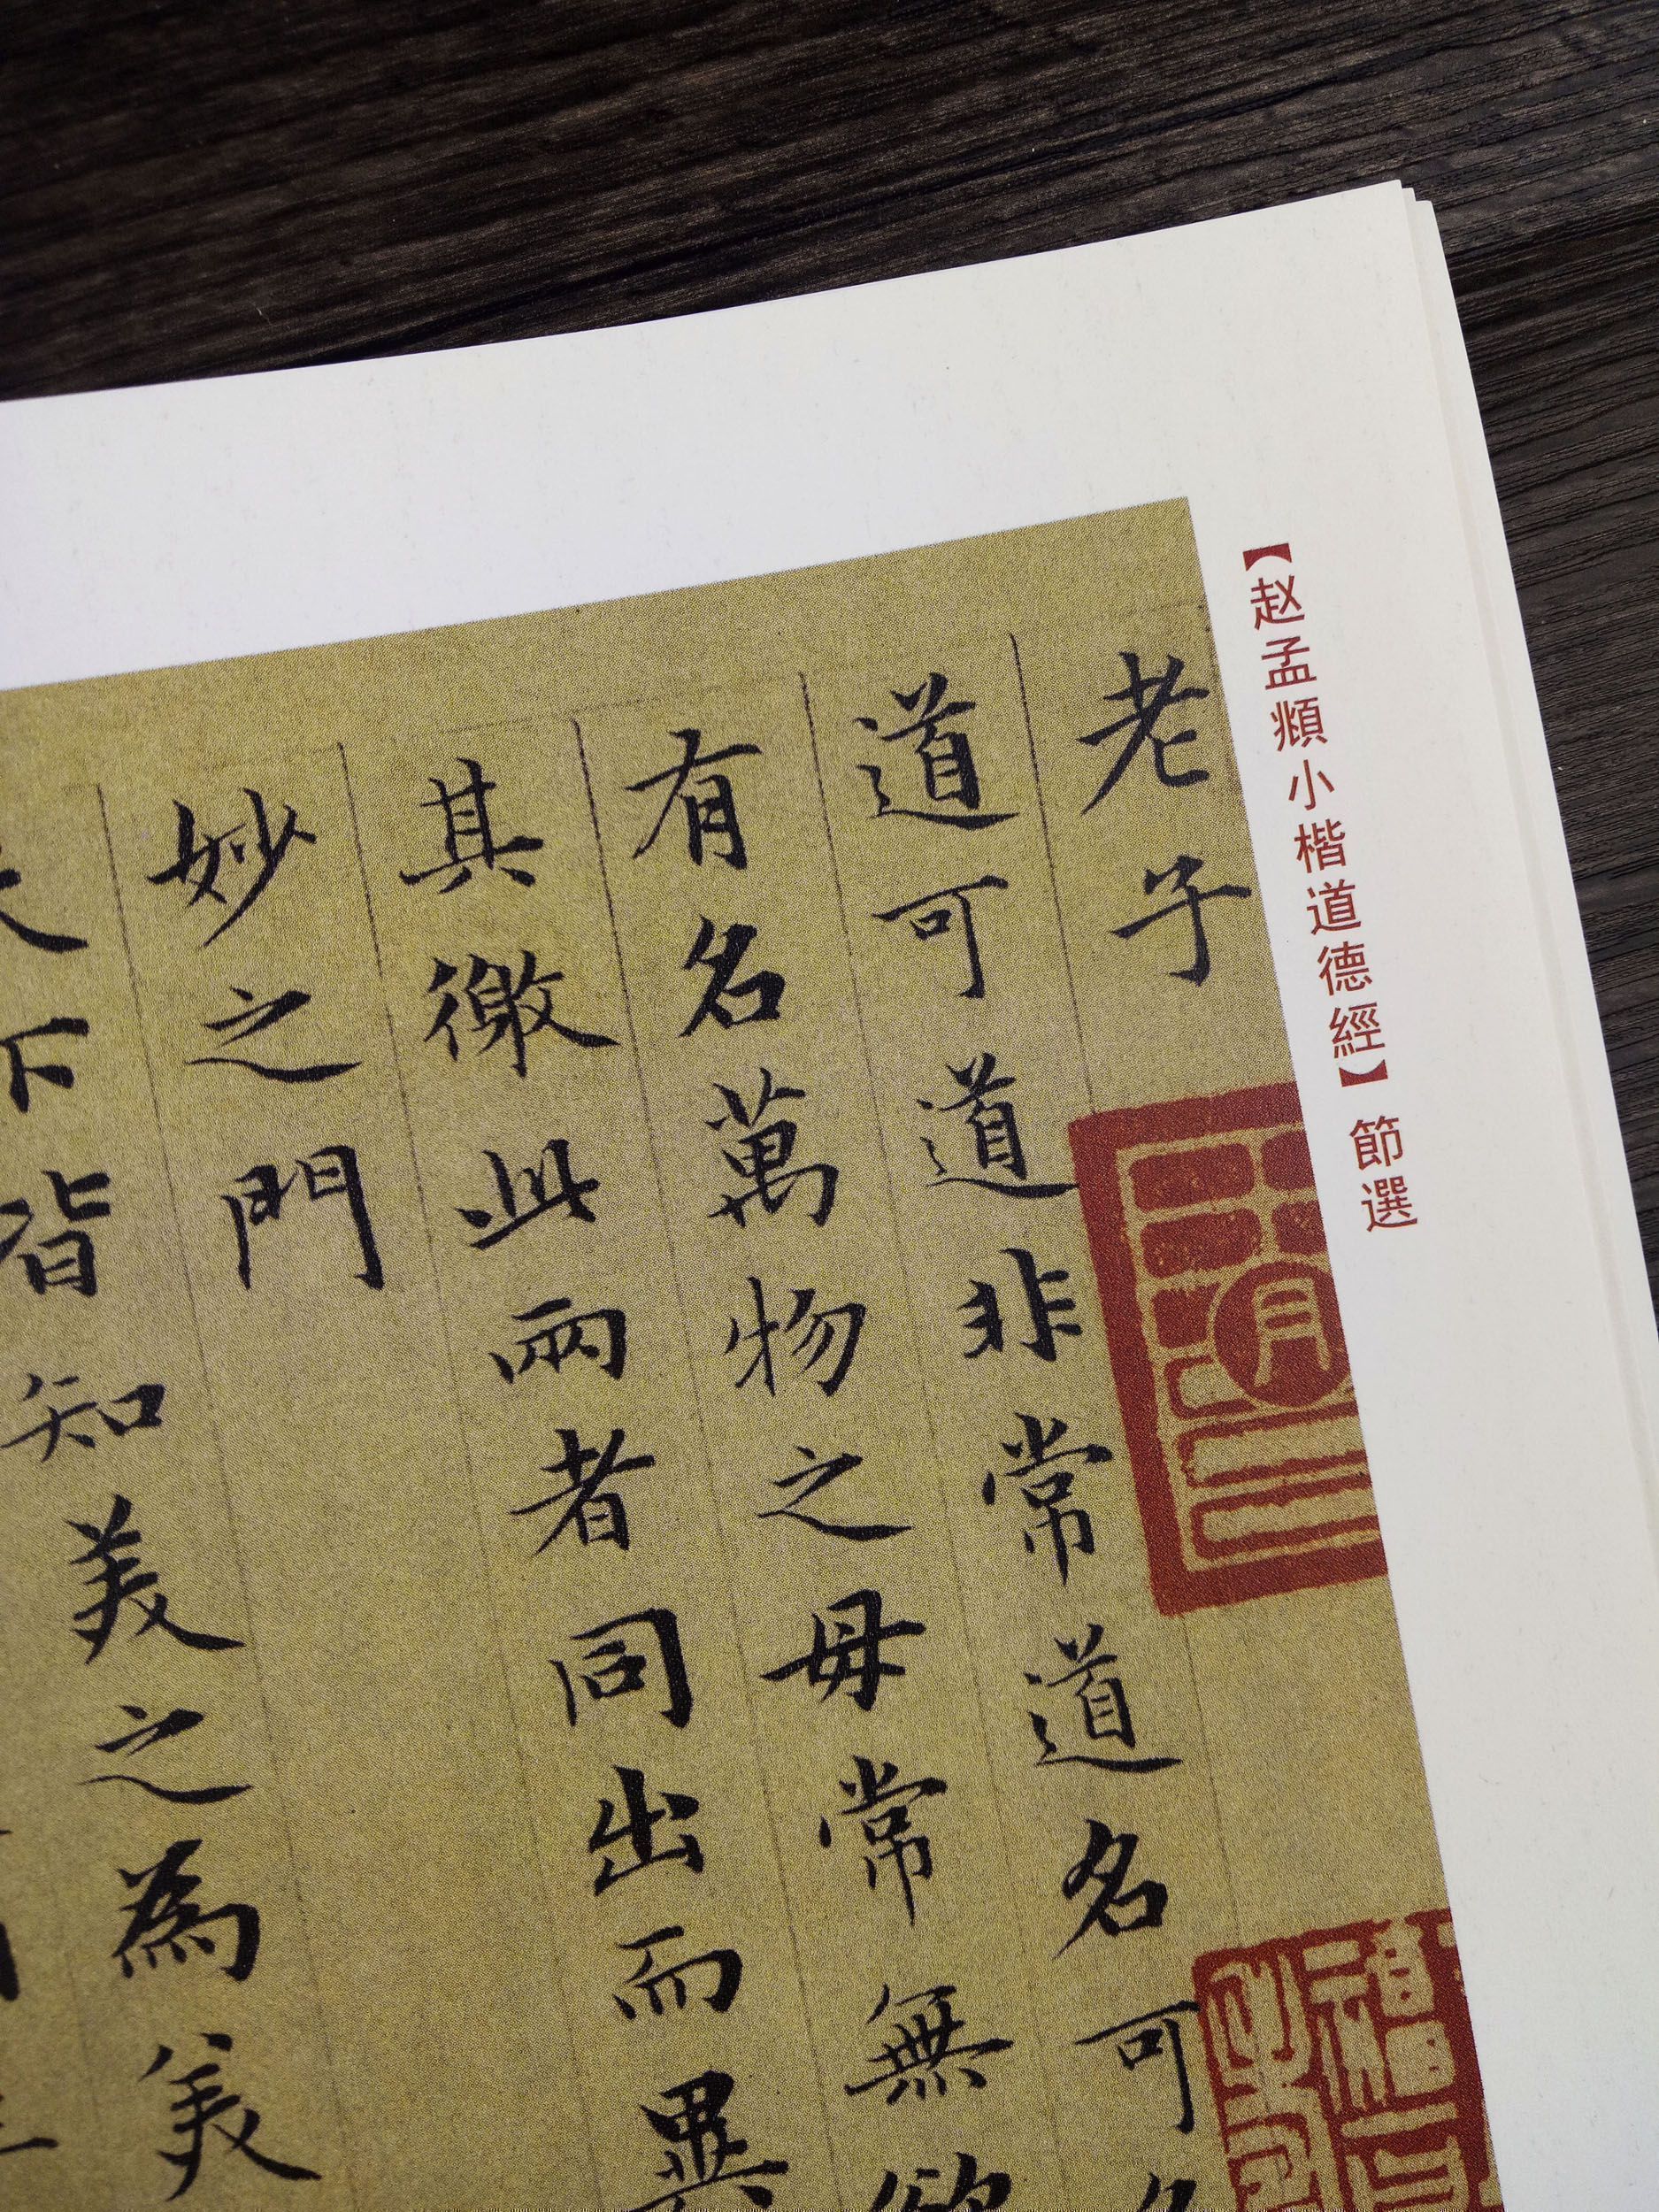 【赵孟頫小楷道德經】節選
老子
道可道非常道名可
有名萬物之母常無欲
其徼此兩者同出而異
妙之門
天下皆知美之為美
月